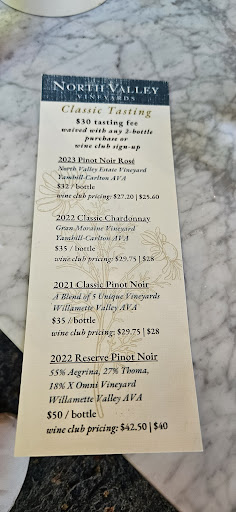 NORTH VALLEY
VINEYARDS
Classic Tasting
$30 tasting fee
waived with any 2-bottle
purchase or
wine club sign-up
2023 Pinot Noir Rosé
North Valley Estate Vineyard
Yamhill-Carlton AVA
$32 / bottle
wine club pricing: $27.20 | $25.60
2022 Classic Chardonnay
Gran Moraine Vineyard
Yamhill-Carlton AVA
$35 / bottle
wine club pricing: $29.75 | $28
2021 Classic Pinot Noir
A Blend of 5 Unique Vineyards
Willamette Valley AVA
$35 / bottle
wine club pricing: $29.75 | $28
2022 Reserve Pinot Noir
55% Aegrina, 27% Thoma,
18% X Omni Vineyard
Willamette Valley AVA
$50 / bottle
wine club pricing: $42.50 | $40